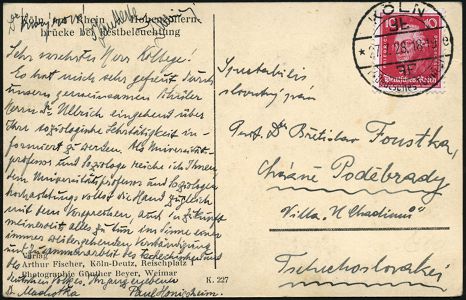 Köln a. Rhein Hohenzollern-
brücke bei Festbeleuchtung
Sehr verehrter Herr Kollege!
Es hat mich sehr gefreut durch
unseren gemeinsamen Schüler
Herrn Dr. Ullrich eingehend über
Ihre soziologische Lehrtätigkeit in-
formiert zu werden. Als Universitäts-
professor und Soziologe reiche ich Ihnen,
dem Universitätsprofessor und Soziologen
hochachtungsvollst die Hand zugleich
mit dem Versprechen, auch in Zukunft
meinerseits alles zu tun im Sinne einer
immer weitergehenden Verständigung
und Zusammenarbeit des tschechischen und
deutschen Volkes. Ihr ganz ergebener
Paul Honigsheim
Verlag
Arthur Fischer, Köln-Deutz, Reischplatz 1
Photographie Günther Beyer, Weimar
K. 227
KÖLN
10 10
Deutsches Reich
Spectabilis
slovutný pán
Prof. Dr. Břetislav Foustka,
Lázně Poděbrady
Villa „U Chadimů"
Tschechoslovakei